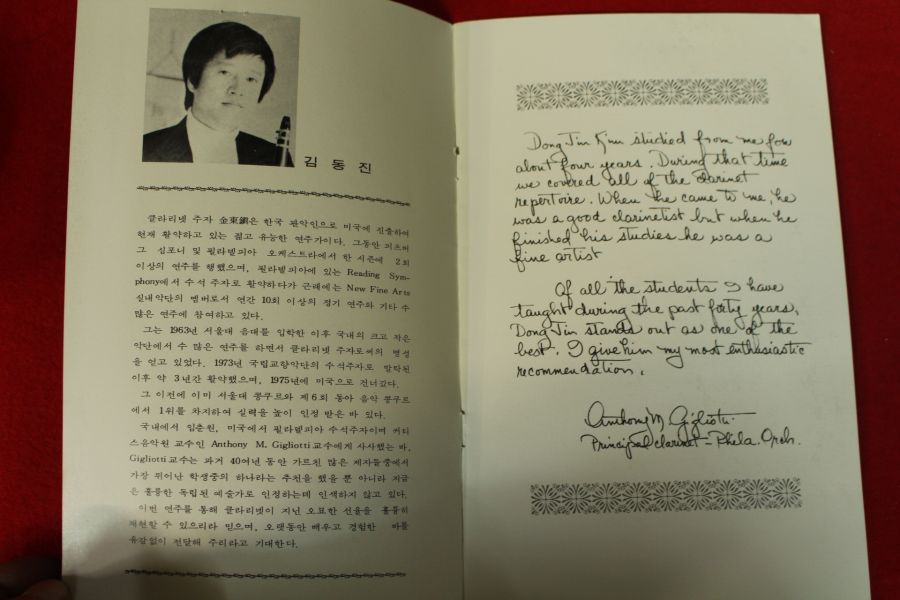 김 동 진
클라리넷 주자 金東鎭은 한국 관악인으로 미국에 진출하여
현재 활약하고 있는 젊고 유능한 연주가이다. 그동안 피츠버
그 심포니 및 필라델피아 오케스트라에서 한 시즌에 2회
이상의 연주를 행했으며, 필라델피아에 있는 Reading Sym-
phony에서 수석 주자로 활약하다가 근래에는 New Fine Arts
실내악단의 멤버로서 연간 10회 이상의 정기 연주와 기타 수
많은 연주에 참여하고 있다.
그는 1963년 서울대 음대를 입학한 이후 국내의 크고 작은
악단에서 수 많은 연주를 하면서 클라리넷 주자로써의 명성
을 얻고 있었다. 1973년 국립교향악단의 수석주자로 발탁된
이후 약 3년간 활약했으며, 1975년에 미국으로 건너갔다.
그 이전에 이미 서울대 콩쿠르와 제6회 동아 음악 콩쿠르
에서 1위를 차지하여 실력을 높이 인정 받은 바 있다.
국내에서 임춘원, 미국에서 필라델피아 수석주자이며 커티
스음악원 교수인 Anthony M. Gigliotti교수에게 사사했는 바,
Gigliotti교수는 과거 40여년 동안 가르친 많은 제자들중에서
가장 뛰어난 학생중의 하나라는 추천을 했을 뿐 아니라 지금
은 훌륭한 독립된 예술가로 인정하는데 인색하지 않고 있다.
이번 연주를 통해 클라리넷이 지닌 오묘한 선율을 훌륭히
재현할 수 있으리라 믿으며, 오랫동안 배우고 경험한 바를
유감없이 전달해 주리라고 기대한다.
Dong Jin Kim studied from me for
about four years. During that time
we covered all of the clarinet
repertoire. When he came to me, he
was a good clarinetist but when he
finished his studies he was a
fine artist
Of all the students I have
taught during the past forty years,
Dong Jin stands out as one of the
best. I give him my most enthusiastic
recommendation.
Anthony M Gigliotti
Principal clarinet - Phila. Orch.